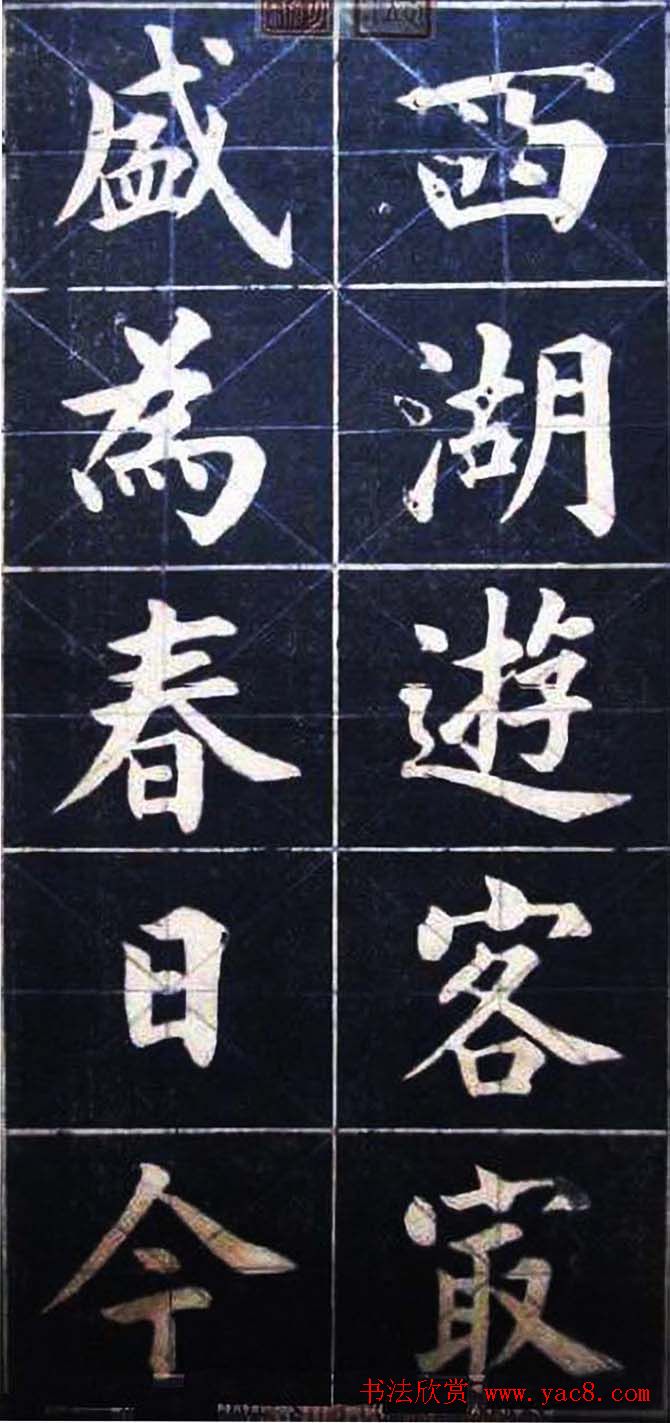 西湖遊客冣
盛為春日今
书法欣赏 www.yac8.com